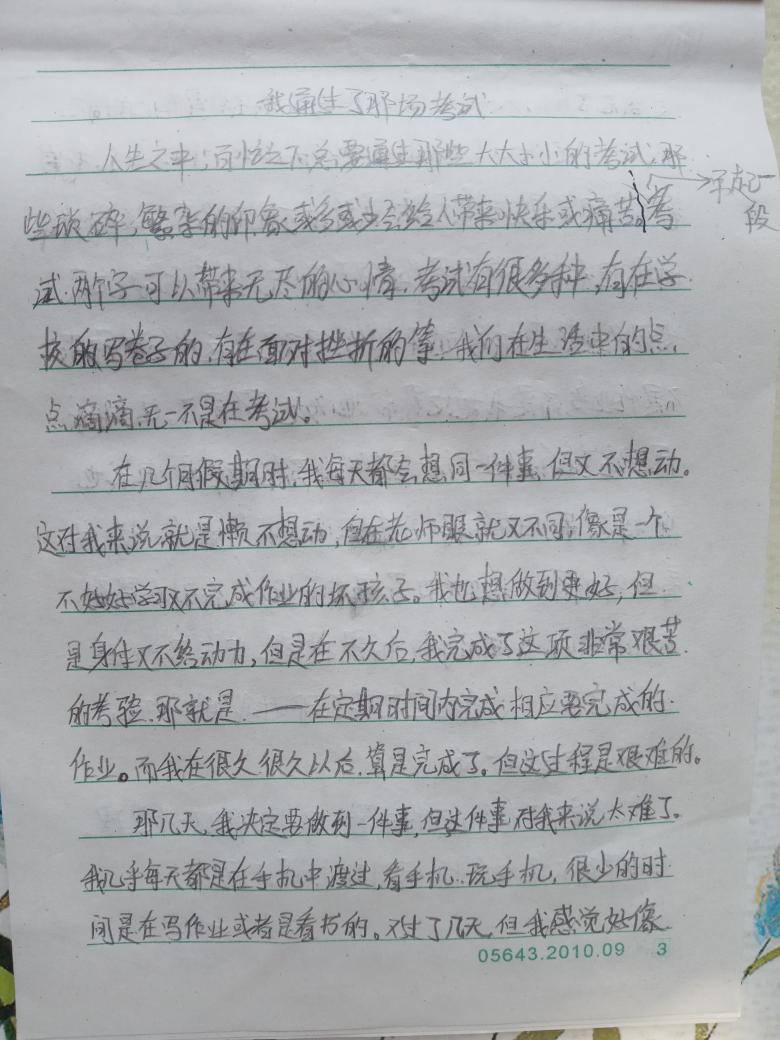 我通过了那场考试
人生之中,百忙之下总要通过那些大大小小的考试,那
些琐碎,繁杂的印象或多或少会给人带来快乐或痛苦。考
另起一
段
试两个字可以带来无尽的心情,考试有很多种,有在学
校的写卷子的,有在面对挫折的等,我们在生活中的点
点滴滴,无一不是在考试。
在几个月假期时,我每天都会想同一件事,但又不想动。
这对我来说就是懒不想动,但在老师眼就又不同,像是一个
不好好学习又不完成作业的坏孩子。我也想做到更好,但
是身体又不给动力,但是在不久后,我完成了这项非常艰苦
的考验,那就是——在定期时间内完成相应要完成的
作业。而我在很久很久以后,算是完成了。但这过程是艰难的。
那几天,我决定要做到一件事,但这件事对我来说太难了。
我几乎每天都是在手机中渡过,看手机,玩手机,很少的时
间是在写作业或者是看书的。过了几天,但我感觉好像
05643.2010.09 3